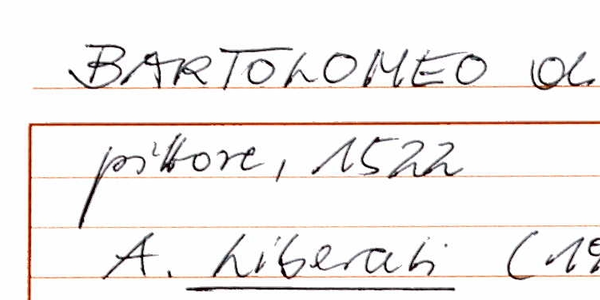 BARTOLOMEO di
pittore, 1522
A. Liberati (19